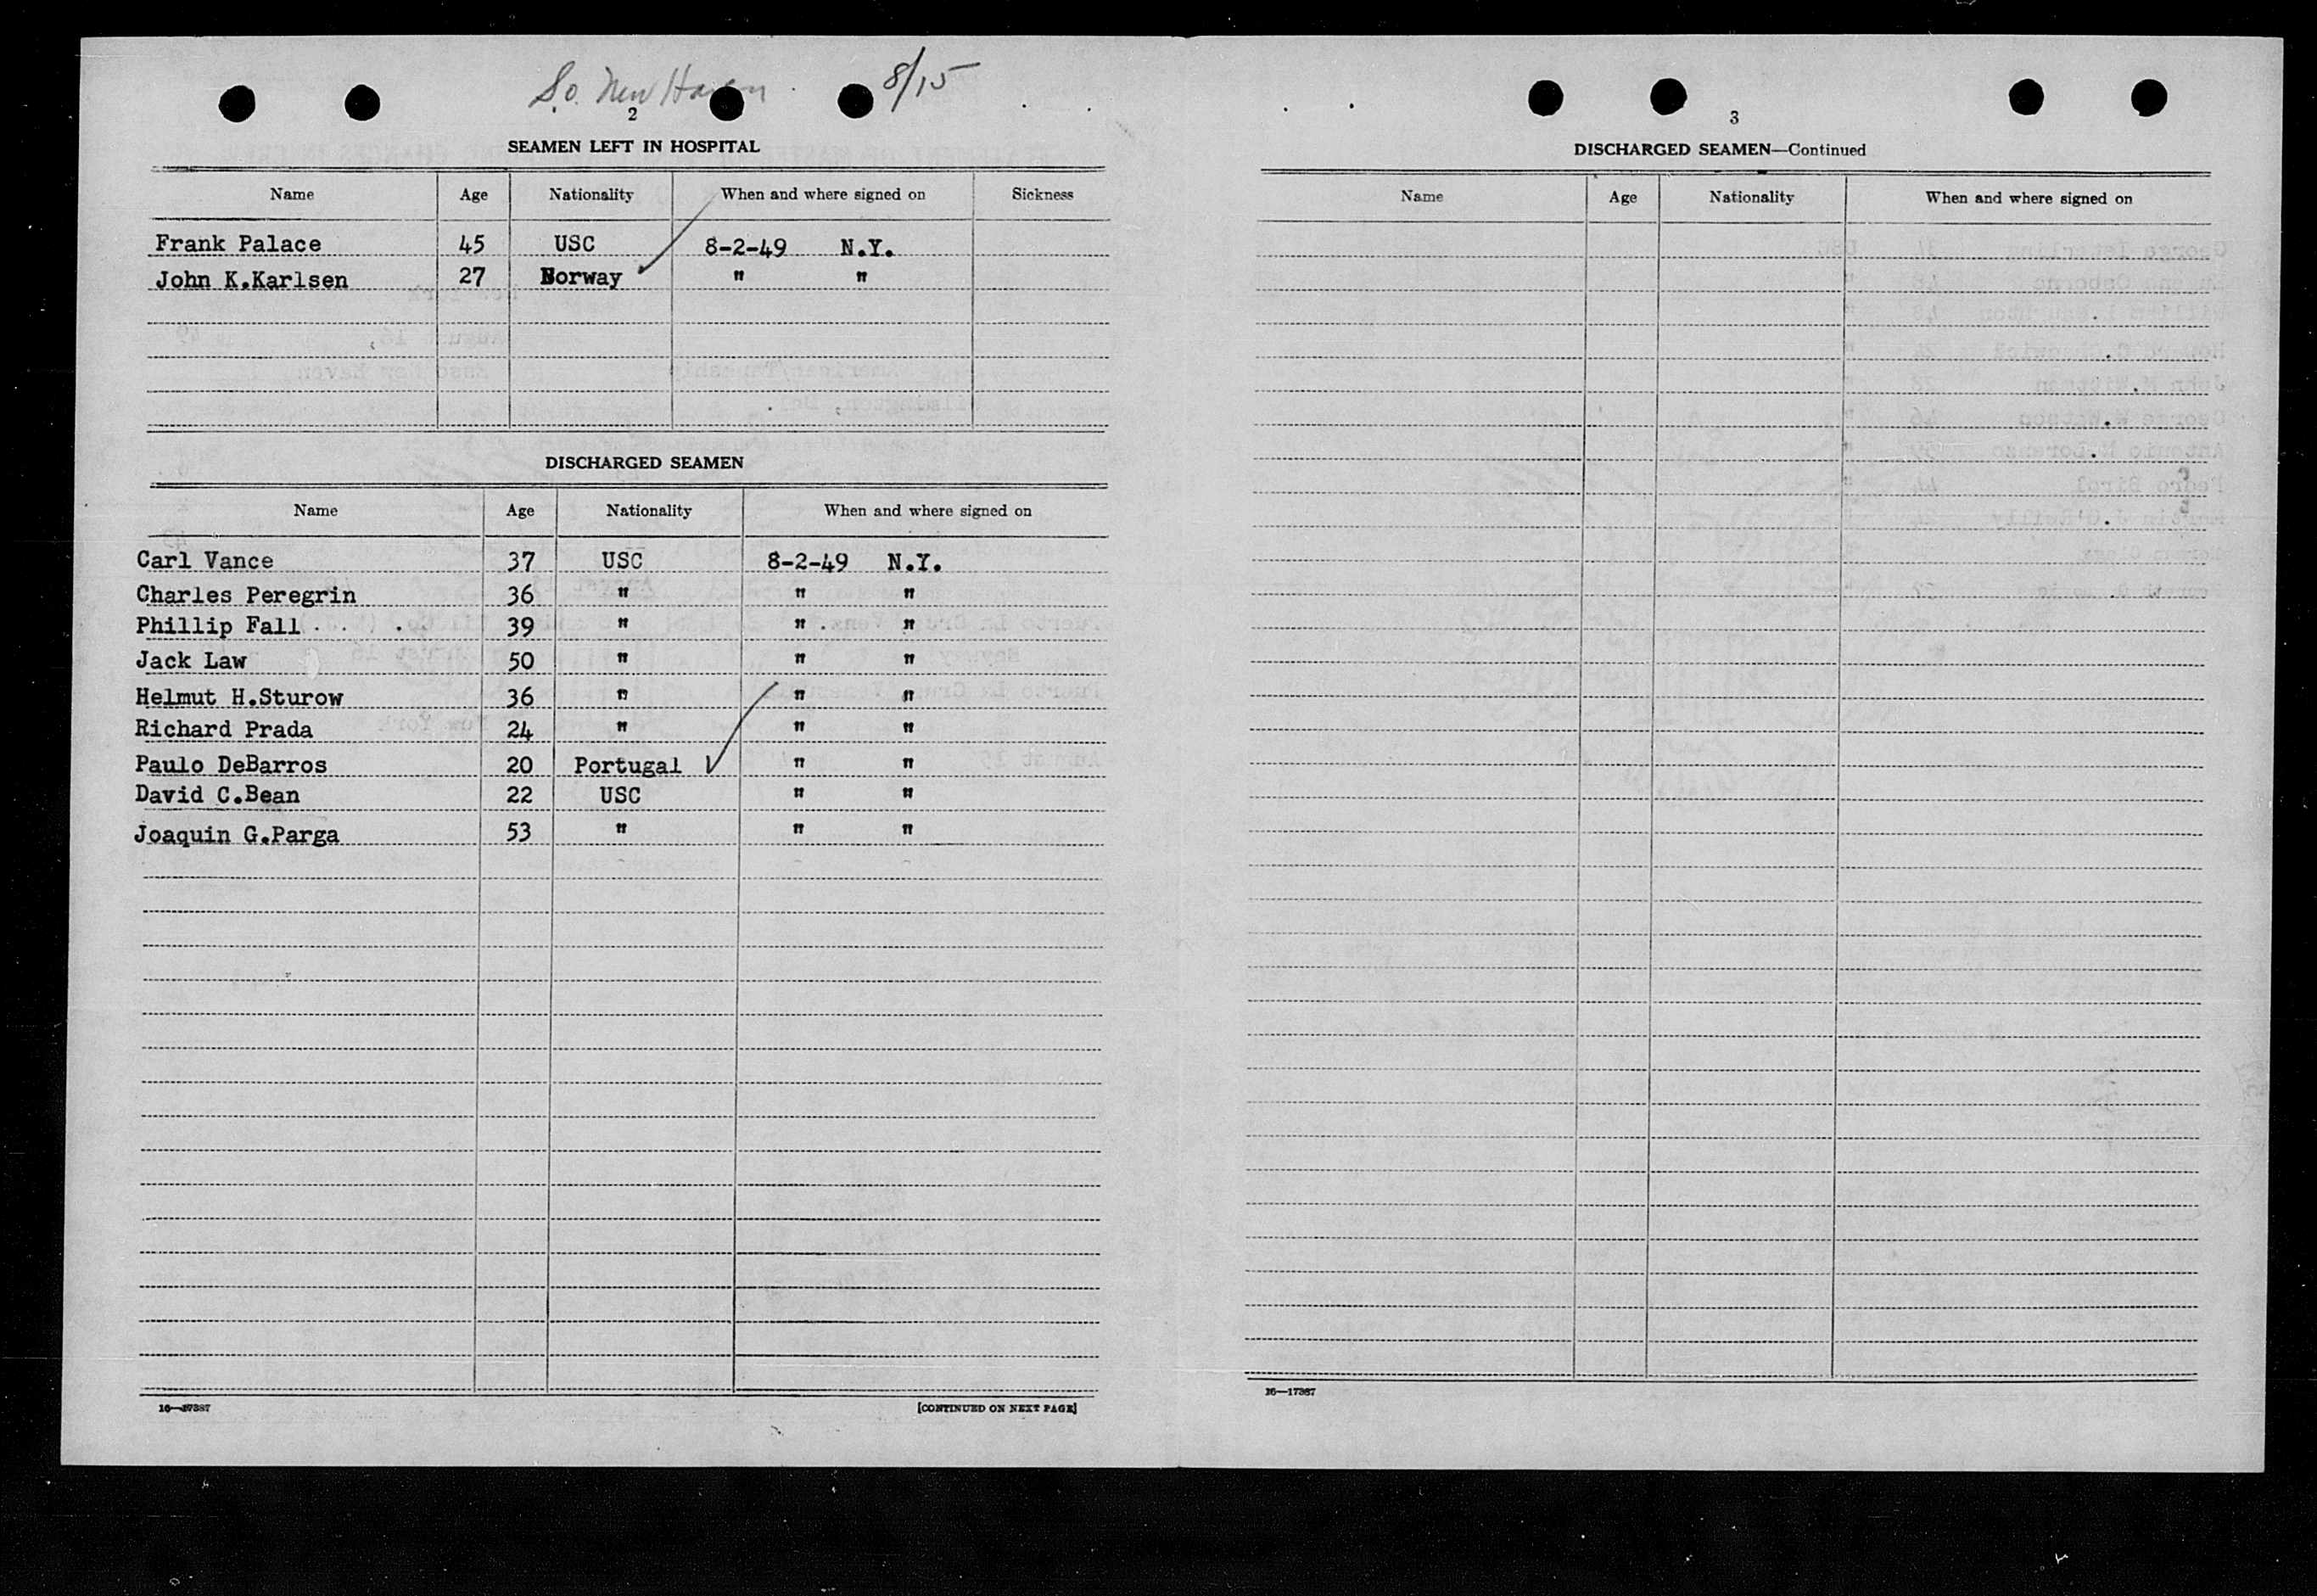 So. New Haven 8/15
2
SEAMEN LEFT IN HOSPITAL
Name Age Nationality When and where signed on Sickness
Frank Palace 45 USC 8-2-49 N.Y.
John K.Karlsen 27 Norway " "
DISCHARGED SEAMEN
Name Age Nationality When and where signed on
Carl Vance 37 USC 8-2-49 N.Y.
Charles Peregrin 36 " " "
Phillip Fall 39 " " "
Jack Law 50 " " "
Helmut H.Sturow 36 " " "
Richard Prada 24 " " "
Paulo DeBarros 20 Portugal " "
David C.Bean 22 USC " "
Joaquin G.Parga 53 " " "
16—17387
[CONTINUED ON NEXT PAGE]
3
DISCHARGED SEAMEN—Continued
Name Age Nationality When and where signed on
16—17387